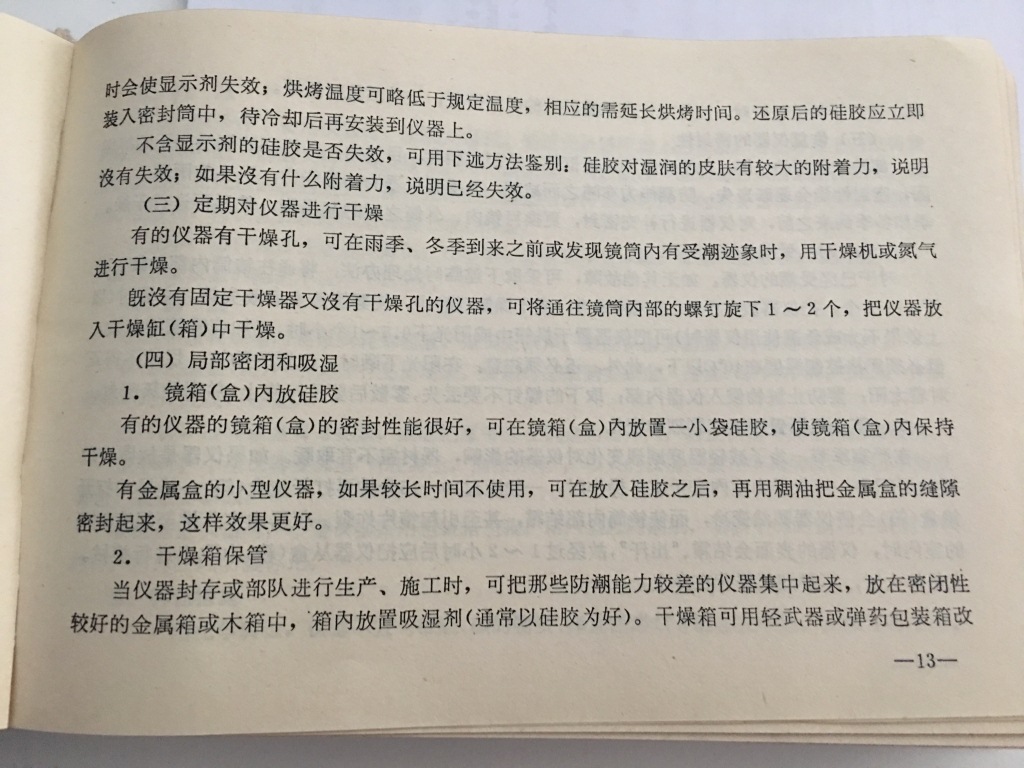 时会使显示剂失效；烘烤温度可略低于规定温度，相应的需延长烘烤时间。还原后的硅胶应立即
装入密封筒中，待冷却后再安装到仪器上。
不含显示剂的硅胶是否失效，可用下述方法鉴别：硅胶对湿润的皮肤有较大的附着力，说明
沒有失效；如果沒有什么附着力，说明已经失效。
（三）定期对仪器进行干燥
有的仪器有干燥孔，可在雨季、冬季到来之前或发现镜筒内有受潮迹象时，用干燥机或氮气
进行干燥。
既沒有固定干燥器又沒有干燥孔的仪器，可将通往镜筒内部的螺钉旋下1～2个，把仪器放
入干燥缸(箱)中干燥。
（四）局部密闭和吸湿
1．镜箱(盒)内放硅胶
有的仪器的镜箱(盒)的密封性能很好，可在镜箱(盒)内放置一小袋硅胶，使镜箱(盒)内保持
干燥。
有金属盒的小型仪器，如果较长时间不使用，可在放入硅胶之后，再用稠油把金属盒的缝隙
密封起来，这样效果更好。
2．干燥箱保管
当仪器封存或部队进行生产、施工时，可把那些防潮能力较差的仪器集中起来，放在密闭性
较好的金属箱或木箱中，箱内放置吸湿剂(通常以硅胶为好)。干燥箱可用轻武器或弹药包装箱改
—13—